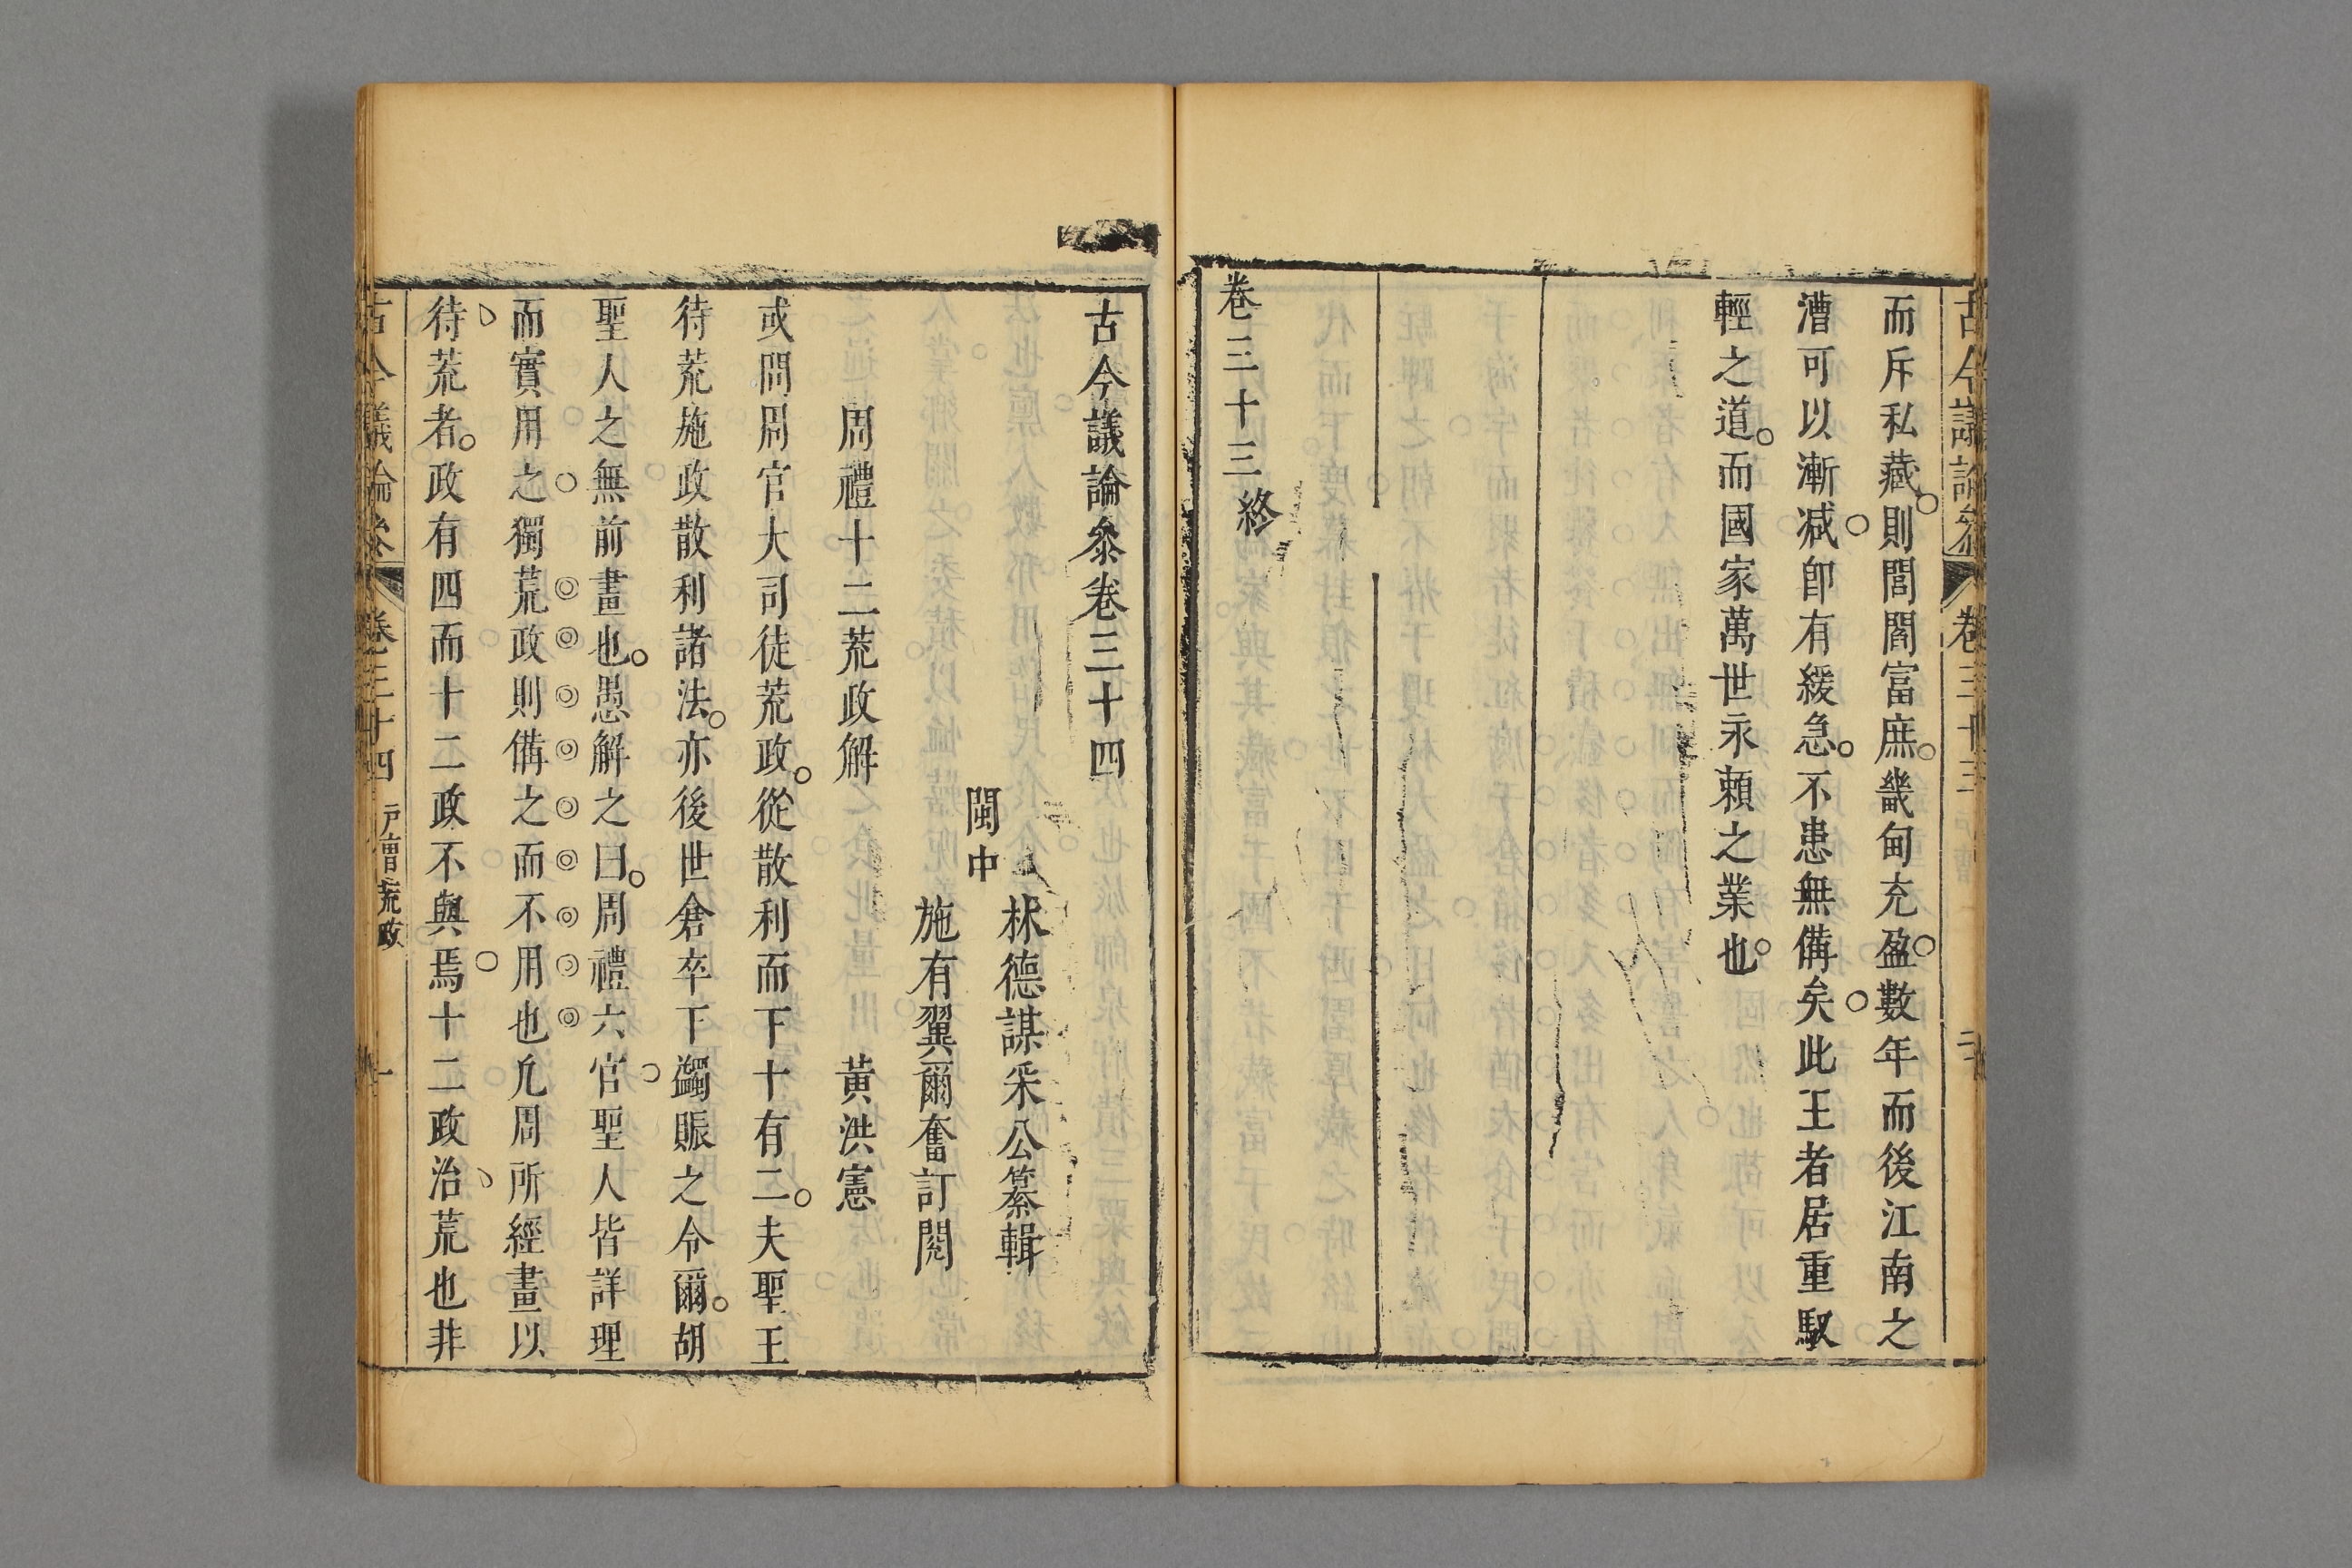 古今議論參
卷三十三
而斥私藏則閭閻富庶畿甸充盈數年而後江南之
漕可以漸减卽有緩急不患無備矣此王者居重馭
輕之道而國家萬世永賴之業也
卷三十三終
古今議論叅卷三十四
閩中
林德謀采公纂輯
施有翼爾奮訂閱
周禮十二荒政解
黃洪憲
或問周官大司徒荒政從散利而下十有二夫聖王
待荒施政散利諸法亦後世倉卒下蠲賑之令爾胡
聖人之無前畫也愚解之曰周禮六官聖人皆詳理
而實用之獨荒政則備之而不用也凢周所經畫以
待荒者政有四而十二政不與焉十二政治荒也非
古今議論參
卷三十四
戶曹荒政
一